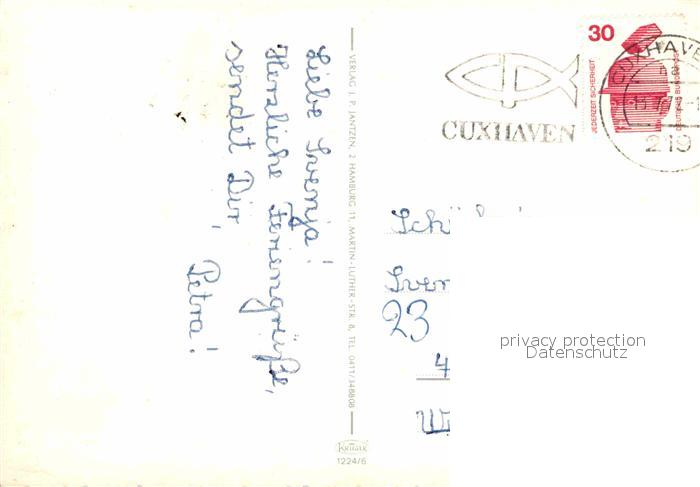 Liebe Svenja!
Herzliche Feriengrüße,
sendet Dir,
Petra!
VERLAG J. P. JANTZEN, 2 HAMBURG 11, MARTIN-LUTHER-STR. 8, TEL. 0411/348808
KRÜGER
1224/6
30
JEDERZEIT SICHERHEIT
DEUTSCHE BUNDESPOST
CUXHAVEN
CUXHAVEN
219
Schü
Sven
23
4
privacy protection
Datenschutz